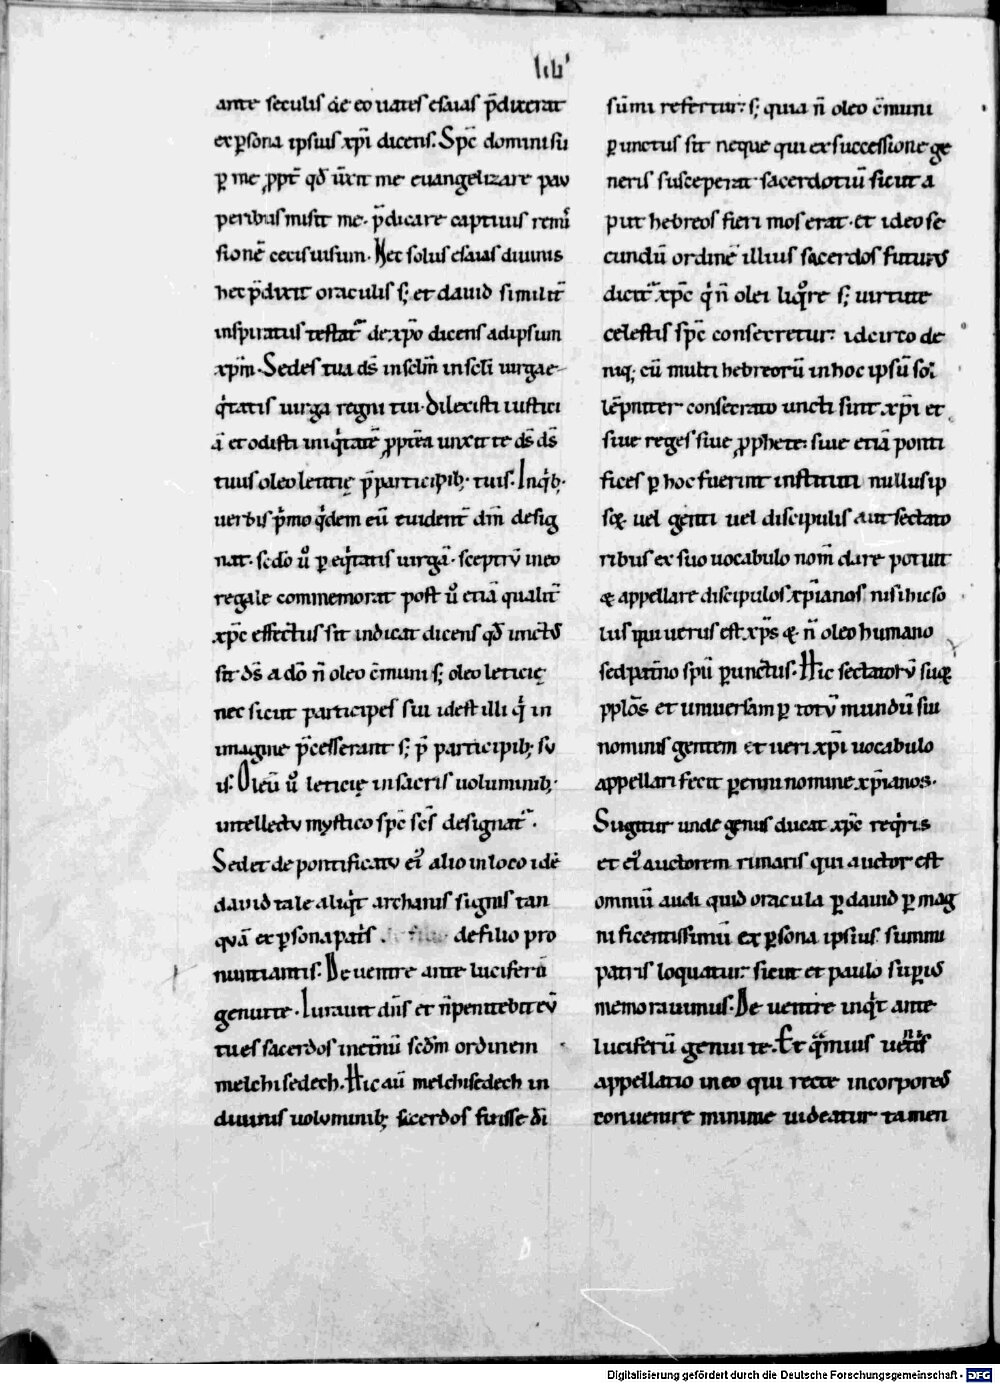 lib'
ante seculis de eo uates esaias p̄dixerat
ex ꝑsona ipsius xp̄i dicens. Sp̄c domini su
ꝑ me ꝓpt̄ qđ ūxit me euangelizare pau
peribus misit me. p̄dicare captiuis remis
sionē cecis uisum. Nec solus esaias diuinis
hec p̄dixit oraculis s; et dauid similit̄
inspiratus testat᷑ de xp̄o dicens ad ipsum
xp̄m. Sedes tua ds̄ in sclm̄ in scli uirga e
q̇tatis uirga regni tui. dilexisti iustici
ā et odisti iniq̇tatē ꝓpterea unxit te ds̄ ds̄
tuus oleo leticię p̄ participib; tuis. In q̇b;
uerbis p̄mo q̇dem eū euident̄ dm̄ desig
nat. scdo ū ꝑ eq̇tatis uirgā. sceptrū in eo
regale commemorat post ū etiā qualit̄
xp̄c effectus sit indicat dicens qđ unctus
sit ds̄ a do n̄ oleo c̄muni s; oleo leticię
nec sicut participes sui id est illi q̇ in
imagine p̄cesserant s; p̄ participib; su
is. Oleū ū leticię in sacris uoluminib;
intellectu mystico sp̄c sc̄s designat᷑.
Sed et de pontificatu ei᷒ alio in loco idē
dauid tale aliq̇t archanis signis tan
quā ex ꝑsona patris . de filio pro
nuntiantis. De uentre ante luciferū
genui te. Iurauit dn̄s et n̄ penitebit eū
tu es sacerdos in etn̄ū scđm ordinem
melchisedech. Hic aū melchisedech in
diuinis uoluminib; sacerdos fuisse di
sūmi refertur s; quia n̄ oleo c̄muni
ꝑunctus sit neque qui ex successione ge
neris susceperat sacerdotiū sicut a
put hebreos fieri mos erat. et ideo se
cundū ordinē illius sacerdos futurus
dicit᷑ xp̄c q̇ n̄ olei liq̊re s; uirtute
celestis sp̄c consecretur. idcirco de
niq; cū multi hebreorū in hoc ipsū sol
lēpniter consecrato uncti sint xp̄i et
siue reges siue ꝓphete siue etiā ponti
fices ꝑ hoc fuerint instituti nullus ip
soꝝ uel genti uel discipulis aut sectato
ribus ex suo uocabulo nom̄ dare potuit
& appellare discipulos xp̄ianos nisi hic so
lus qui uerus est xp̄s & n̄ oleo humano
sed patn̄o spū ꝑunctus. Hic sectatorū suoꝝ
pplōs et uniuersam ꝑ totū mundū sui
nominis gentem et ueri xp̄i uocabulo
appellari fecit ꝑenni nomine xp̄ianos.
Si igitur unde genus ducat xp̄c req̇ris
et ei᷒ auctorem rimaris qui auctor est
omniū audi quid oracula ꝑ dauid ꝑ mag
nificentissimū ex ꝑsona ipsius summi
patris loquatur sicut et paulo suꝑius
memorauimus. De uentre inq̇t ante
luciferū genui te. Et q̇muis uentris
appellatio in eo qui recte incorporeus
conuenire minime uideatur tamen
Digitalisierung gefördert durch die Deutsche Forschungsgemeinschaft - DFG